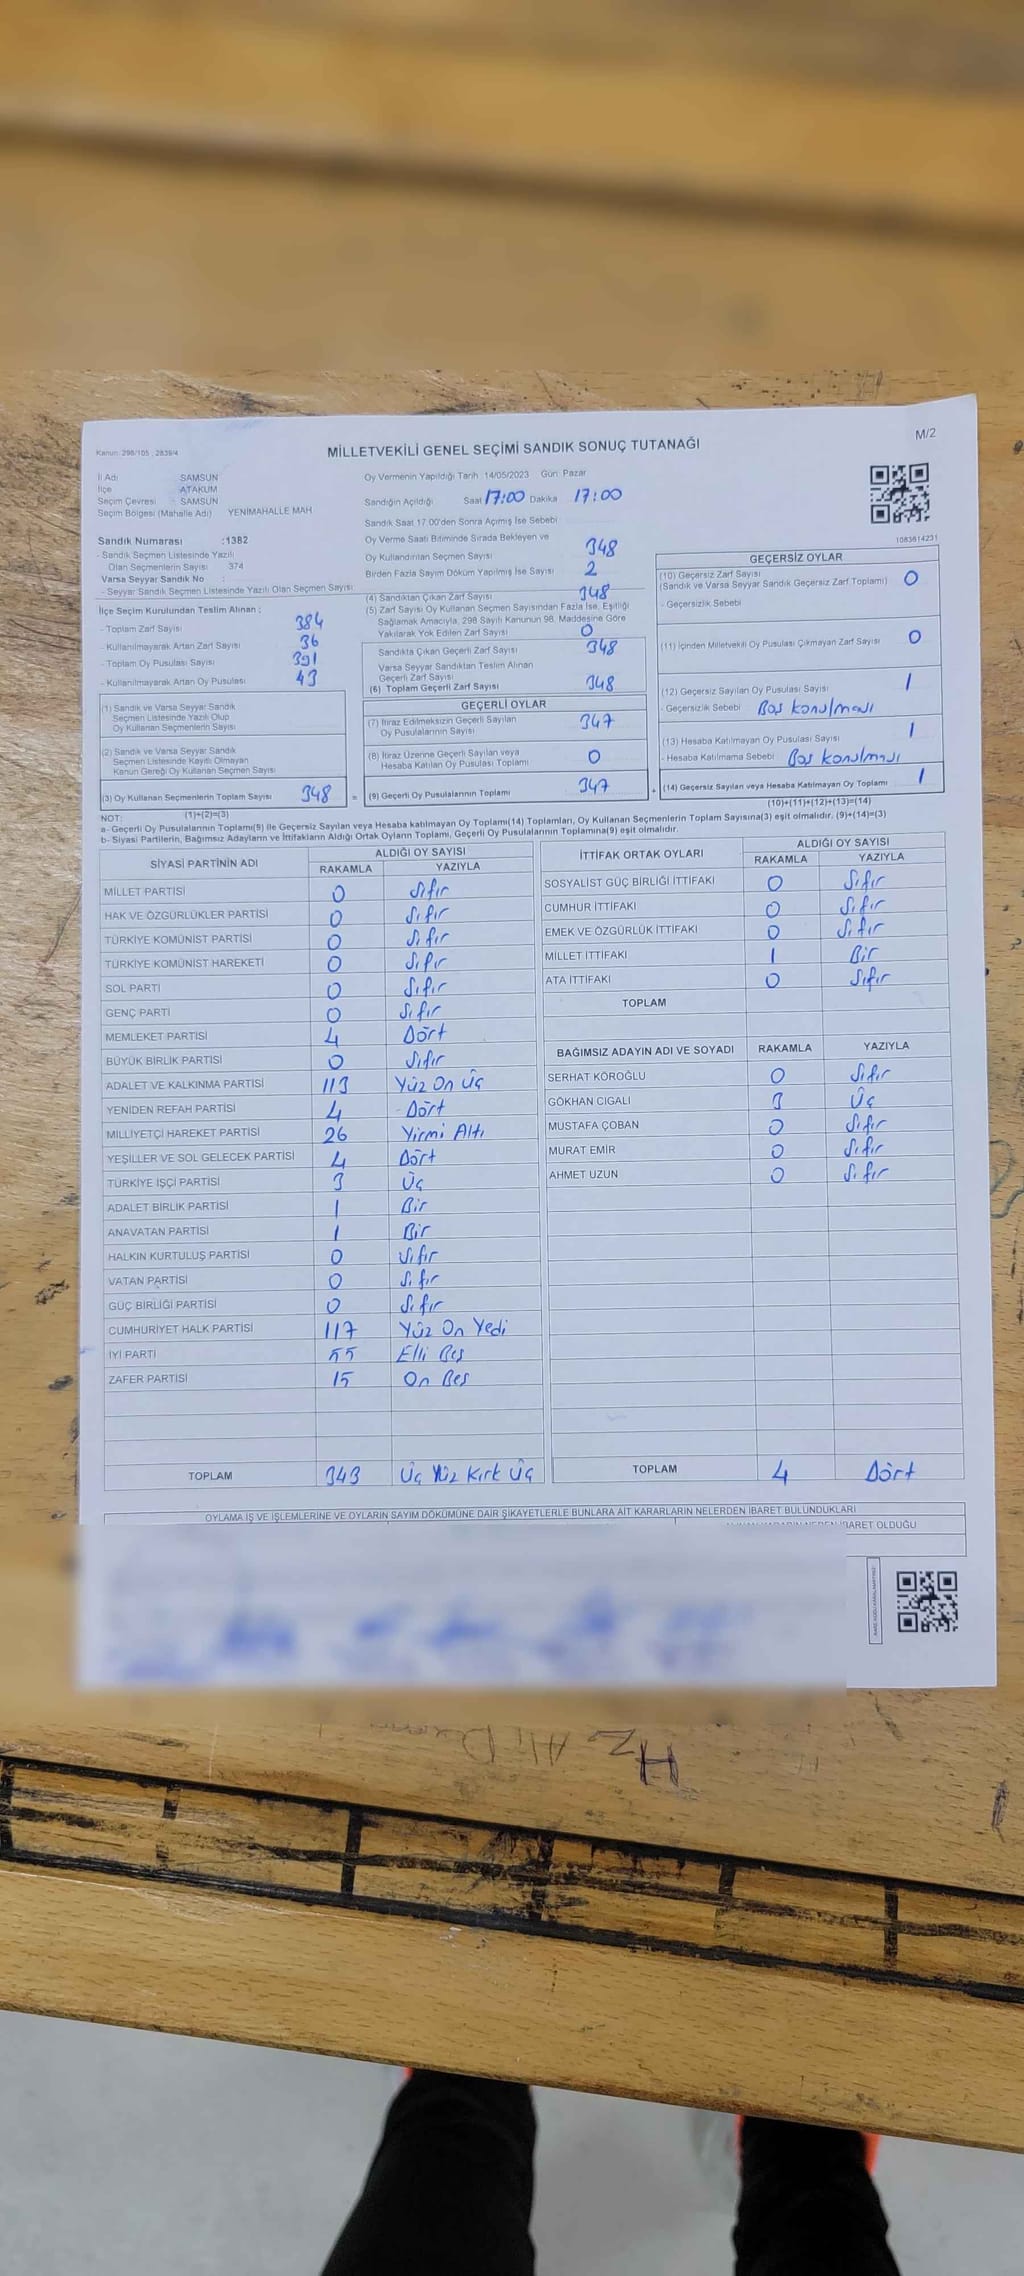 M/2
Kanun: 298/105 ; 2839/4
MİLLETVEKİLİ GENEL SEÇİMİ SANDIK SONUÇ TUTANAĞI
İl Adı : SAMSUN
İlçe : ATAKUM
Seçim Çevresi : SAMSUN
Seçim Bölgesi (Mahalle Adı) YENİMAHALLE MAH
Sandık Numarası :1382
- Sandık Seçmen Listesinde Yazılı
Olan Seçmenlerin Sayısı : 374
Varsa Seyyar Sandık No :
- Seyyar Sandık Seçmen Listesinde Yazılı Olan Seçmen Sayısı
İlçe Seçim Kurulundan Teslim Alınan :
- Toplam Zarf Sayısı 384
- Kullanılmayarak Artan Zarf Sayısı 36
- Toplam Oy Pusulası Sayısı 391
- Kullanılmayarak Artan Oy Pusulası 43
(1) Sandık ve Varsa Seyyar Sandık
Seçmen Listesinde Yazılı Olup
Oy Kullanan Seçmenlerin Sayısı
(2) Sandık ve Varsa Seyyar Sandık
Seçmen Listesinde Kayıtlı Olmayan
Kanun Gereği Oy Kullanan Seçmen Sayısı
(3) Oy Kullanan Seçmenlerin Toplam Sayısı 348 =
(1)+(2)=(3)
Oy Vermenin Yapıldığı Tarih 14/05/2023 Gün: Pazar
Sandığın Açıldığı Saat 17:00 Dakika 17:00
Sandık Saat 17.00'den Sonra Açımış İse Sebebi
Oy Verme Saati Bitiminde Sırada Bekleyen ve
Oy Kullandırılan Seçmen Sayısı 348
Birden Fazla Sayım Döküm Yapılmış İse Sayısı 2
(4) Sandıktan Çıkan Zarf Sayısı 348
(5) Zarf Sayısı Oy Kullanan Seçmen Sayısından Fazla İse, Eşitliği
Sağlamak Amacıyla, 298 Sayılı Kanunun 98. Maddesine Göre
Yakılarak Yok Edilen Zarf Sayısı 0
Sandıkta Çıkan Geçerli Zarf Sayısı 348
Varsa Seyyar Sandıktan Teslim Alınan
Geçerli Zarf Sayısı
(6) Toplam Geçerli Zarf Sayısı 348
GEÇERLİ OYLAR
(7) İtiraz Edilmeksizin Geçerli Sayılan
Oy Pusulalarının Sayısı 347
(8) İtiraz Üzerine Geçerli Sayılan veya
Hesaba Katılan Oy Pusulası Toplamı 0
(9) Geçerli Oy Pusulalarının Toplamı 347 +
1083614231
GEÇERSİZ OYLAR
(10) Geçersiz Zarf Sayısı
(Sandık ve Varsa Seyyar Sandık Geçersiz Zarf Toplamı) 0
- Geçersizlik Sebebi
(11) İçinden Milletvekili Oy Pusulası Çıkmayan Zarf Sayısı 0
(12) Geçersiz Sayılan Oy Pusulası Sayısı 1
- Geçersizlik Sebebi Boş konulması
(13) Hesaba Katılmayan Oy Pusulası Sayısı 1
- Hesaba Katılmama Sebebi Boş konulması
(14) Geçersiz Sayılan veya Hesaba Katılmayan Oy Toplamı 1
(10)+(11)+(12)+(13)=(14)
NOT:
a- Geçerli Oy Pusulalarının Toplamı(9) ile Geçersiz Sayılan veya Hesaba katılmayan Oy Toplamı(14) Toplamları, Oy Kullanan Seçmenlerin Toplam Sayısına(3) eşit olmalıdır. (9)+(14)=(3)
b- Siyasi Partilerin, Bağımsız Adayların ve İttifakların Aldığı Ortak Oyların Toplamı, Geçerli Oy Pusulalarının Toplamına(9) eşit olmalıdır.
SİYASİ PARTİNİN ADI ALDIĞI OY SAYISI
RAKAMLA YAZIYLA
MİLLET PARTİSİ 0 Sıfır
HAK VE ÖZGÜRLÜKLER PARTİSİ 0 Sıfır
TÜRKİYE KOMÜNİST PARTİSİ 0 Sıfır
TÜRKİYE KOMÜNİST HAREKETİ 0 Sıfır
SOL PARTİ 0 Sıfır
GENÇ PARTİ 0 Sıfır
MEMLEKET PARTİSİ 4 Dört
BÜYÜK BİRLİK PARTİSİ 0 Sıfır
ADALET VE KALKINMA PARTİSİ 113 Yüz On Üç
YENİDEN REFAH PARTİSİ 4 Dört
MİLLİYETÇİ HAREKET PARTİSİ 26 Yirmi Altı
YEŞİLLER VE SOL GELECEK PARTİSİ 4 Dört
TÜRKİYE İŞÇİ PARTİSİ 3 Üç
ADALET BİRLİK PARTİSİ 1 Bir
ANAVATAN PARTİSİ 1 Bir
HALKIN KURTULUŞ PARTİSİ 0 Sıfır
VATAN PARTİSİ 0 Sıfır
GÜÇ BİRLİĞİ PARTİSİ 0 Sıfır
CUMHURİYET HALK PARTİSİ 117 Yüz On Yedi
İYİ PARTİ 55 Elli Beş
ZAFER PARTİSİ 15 On Beş
TOPLAM 343 Üç Yüz Kırk Üç
İTTİFAK ORTAK OYLARI ALDIĞI OY SAYISI
RAKAMLA YAZIYLA
SOSYALİST GÜÇ BİRLİĞİ İTTİFAKI 0 Sıfır
CUMHUR İTTİFAKI 0 Sıfır
EMEK VE ÖZGÜRLÜK İTTİFAKI 0 Sıfır
MİLLET İTTİFAKI 1 Bir
ATA İTTİFAKI 0 Sıfır
TOPLAM
BAĞIMSIZ ADAYIN ADI VE SOYADI RAKAMLA YAZIYLA
SERHAT KÖROĞLU 0 Sıfır
GÖKHAN CIGALI 3 Üç
MUSTAFA ÇOBAN 0 Sıfır
MURAT EMİR 0 Sıfır
AHMET UZUN 0 Sıfır
TOPLAM 4 Dört
OYLAMA İŞ VE İŞLEMLERİNE VE OYLARIN SAYIM DÖKÜMÜNE DAİR ŞİKAYETLERLE BUNLARA AİT KARARLARIN NELERDEN İBARET BULUNDUKLARI
İBARET OLDUĞU
Hz Ali